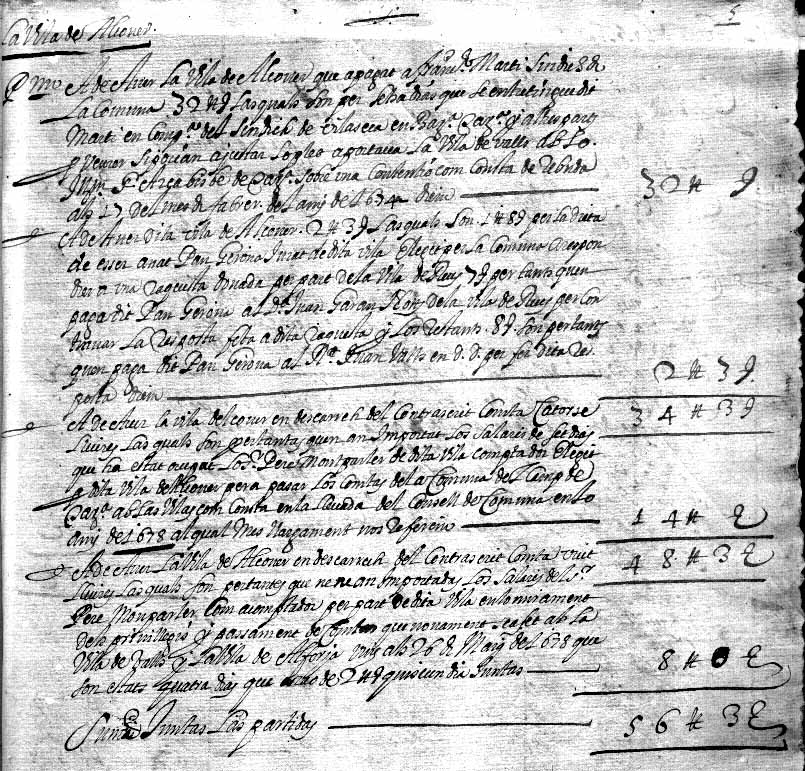 5
La Vila de Alcover.
P.m A de Aver La Vila de Alcover que a pagat a Fran.ch Marti Sindich d
La Comuna 32 # 9 Lasquals son per setse dias que se entretingue dit
Marti en Comp.a del Sindich de Vilaseca en Tarragona y altres parts
p veurer si podian ajustar lo pleo aportava La Vila de Valls ab lo
Illm S.r Arcabisbe de Tar.a sobre una Contentio com Consta de rebuda
als 17 del mes de fabrer del any de 1674 diem 32 # 9
A de Aver dita vila de Alcover 2 # 3 9 Lasquals son 1 # 8 9 per la dieta
de esser anat Pau Gerona Jurat de dita vila Eleget per la Comuna a respon
drer a una Raquesta donada per part de la Vila de Reus 7 9 per tants quen
paga dit Pau Gerona al D.r Juan Not.i de la vila de Reus per con
travar La Resposta feta a dita Raquesta y Los restants 8 9 son per tants
quen paga dit Pau Gerona al R.t Juan Valls en d. D. per fer dita Re
posta diem 2 # 3 9
A de Aver la vila de Alcover en descarrech del Contrascrit Comta Catorse 34 # 3 9
Liures Las quals son per tantas quen an Importat Los Salaris de set dias
que ha estat ocupat Lo S.r Pere Montparler de dita vila Comptador Eleget
p dita Vila de Alcover pera pasar Los Comtas de la Comuna del Camp de
Tar.a ab Las Vilas com Consta en la del Consell de Comuna en lo
any de 1678 al qual mes llargament nos referim 14 # 9
A de Aver La Vila de Alcover en descarrech del Contrascrit Comta Vuit 48 # 3 9
Liures Las quals son per tantes que ne an Importada Los Salaris del S.r
Pere Monparler Com a comptador per part de dita Vila en lo mirament
dels privillegis y passament de Comptes que novament se a fet ab la
Vila de Valls y La Vila de Alforja vuy als 26 d Maig del 1678 que
son estats quatra dias que a rao de 2 # 9 quiscun dia Juntas 8 # 0 9
Suman Juntas Las partidas 56 # 3 9